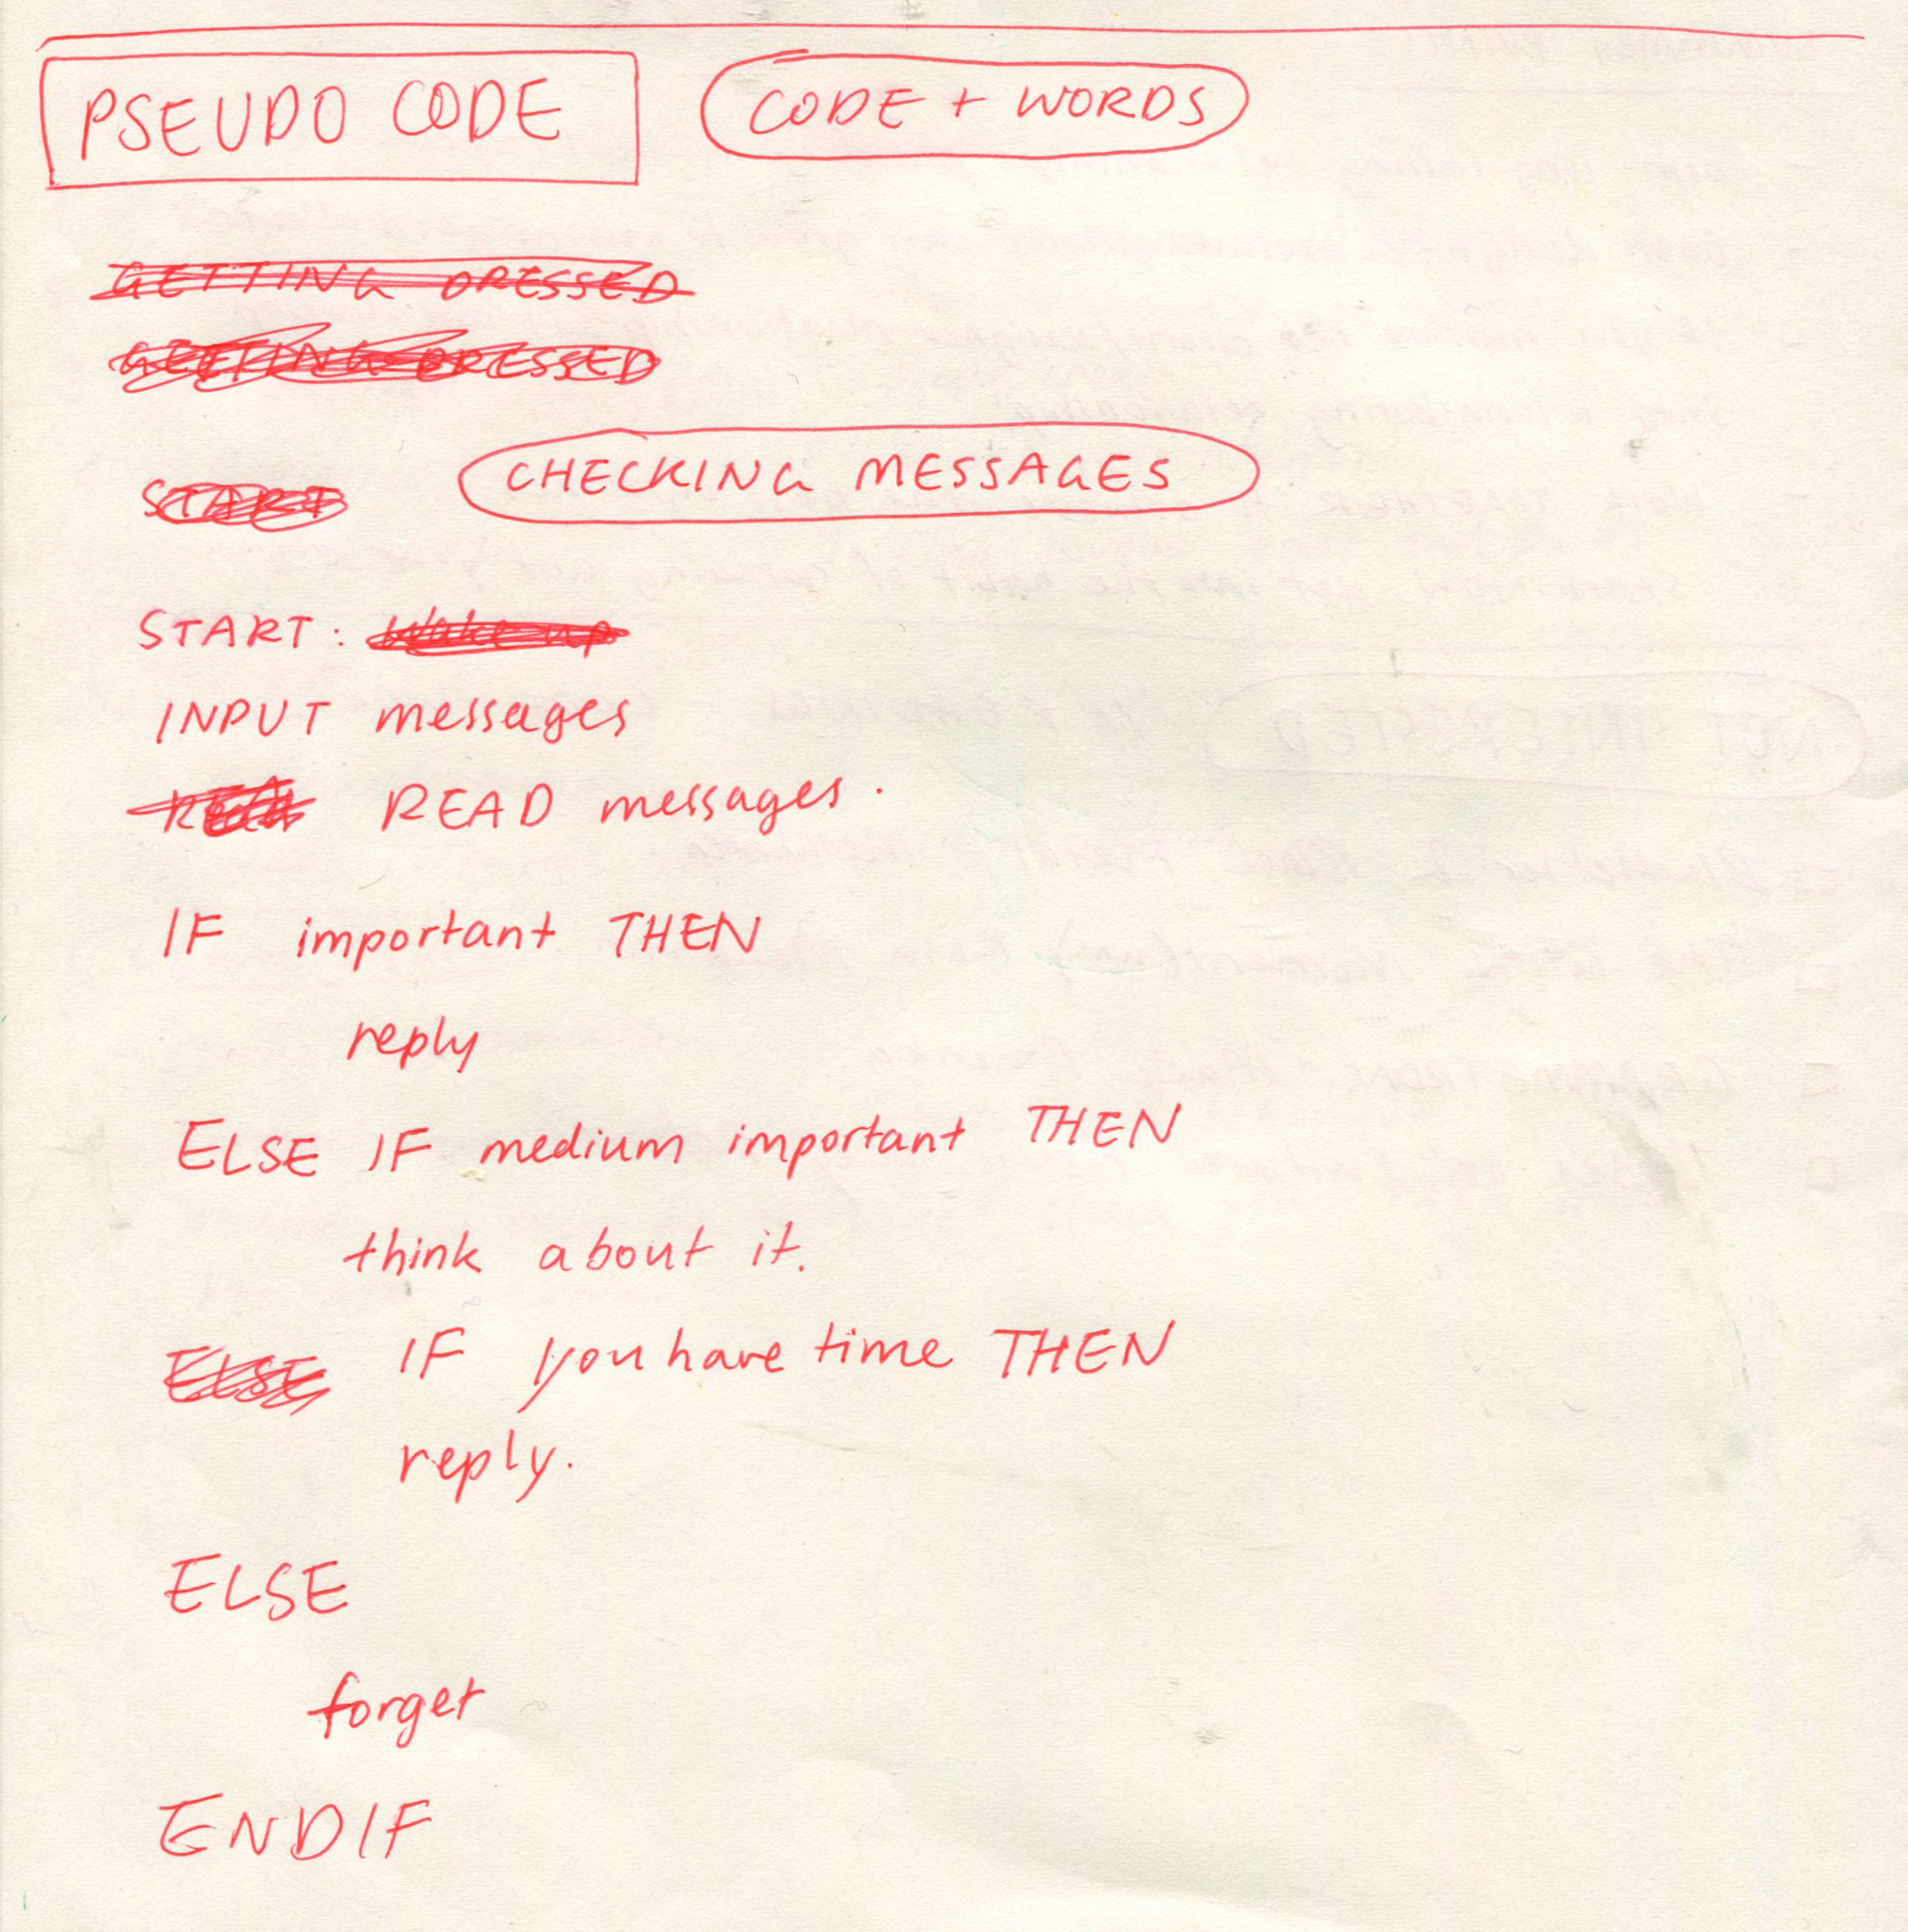 PSEUDO CODE CODE + WORDS
GETTING DRESSED
GETTING DRESSED
START CHECKING MESSAGES
START: Wake up
INPUT messages
READ messages.
IF important THEN
reply
ELSE IF medium important THEN
think about it.
ELSE IF you have time THEN
reply.
ELSE
forget
ENDIF